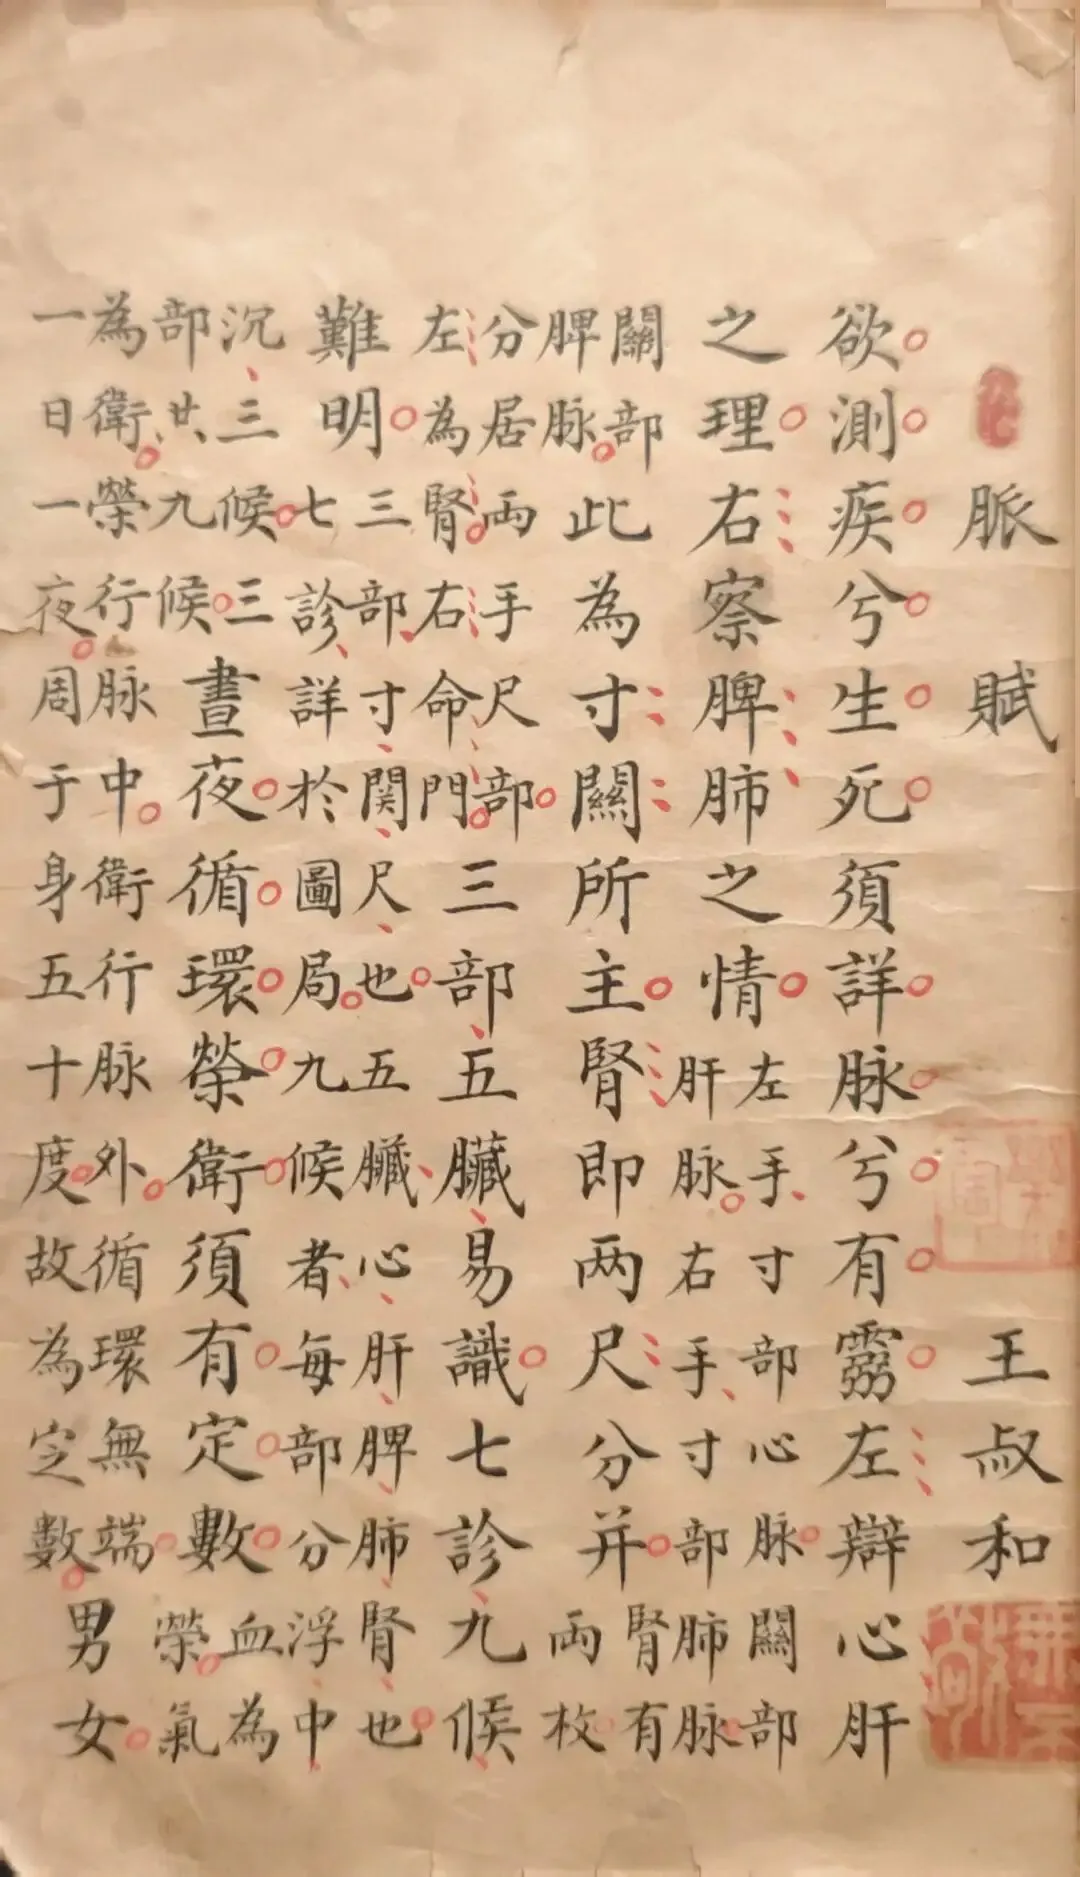 脈賦 王叔和
欲測疾兮生死須詳脉兮有霛左辯心肝
之理右察脾肺之情
左手寸部心脉關部
肝脉右手寸部肺脉
關部
脾脉
此為寸關所主腎即两尺分并
腎有
兩枚
分居兩手尺部
左為腎右命門
三部五臟易識七診九候
難明
三部寸関尺也五臟心肝脾肺腎也
七診詳於圖局九候者每部分浮中
沉三候三
部共九候
晝夜循環榮衛須有定數
血為
榮氣
為衛榮行脉中衛行脉外循環無端
一日一夜周于身五十度故為定數
男女